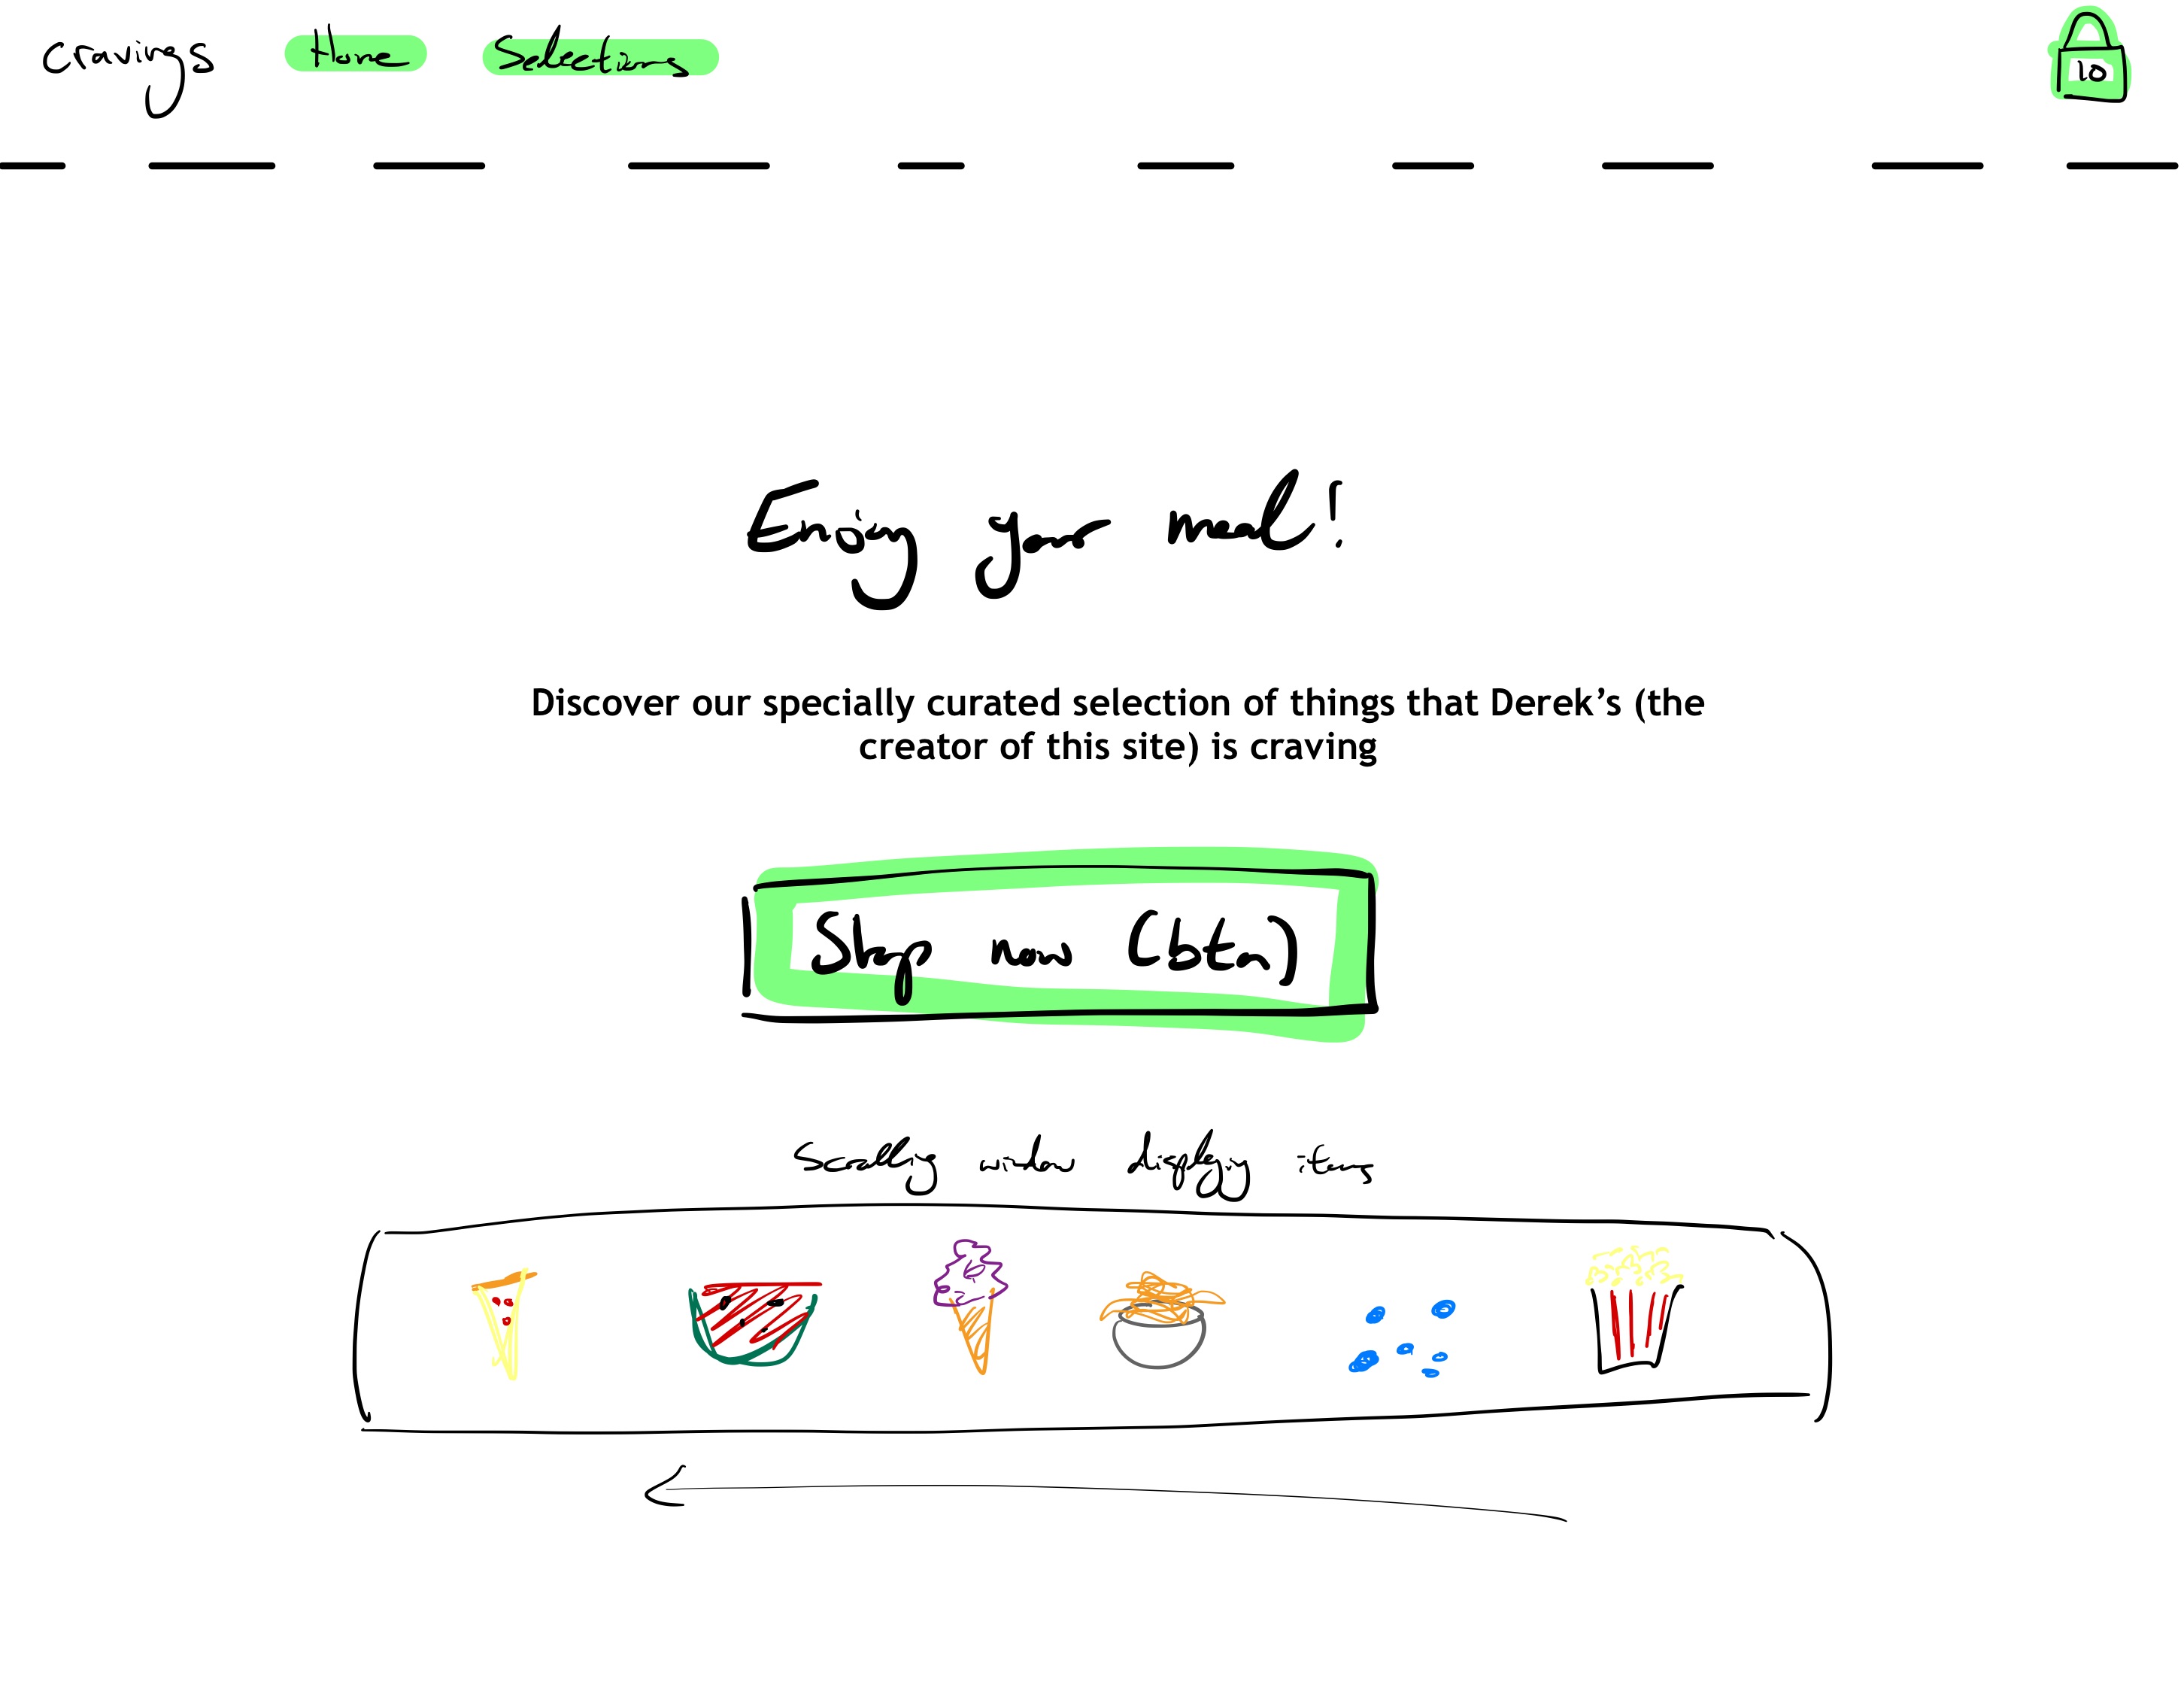 Cravings Home Selections
10
Enjoy your meal!
Discover our specially curated selection of things that Derek’s (the
creator of this site) is craving
Shop now (btn)
Scrolling window displaying items